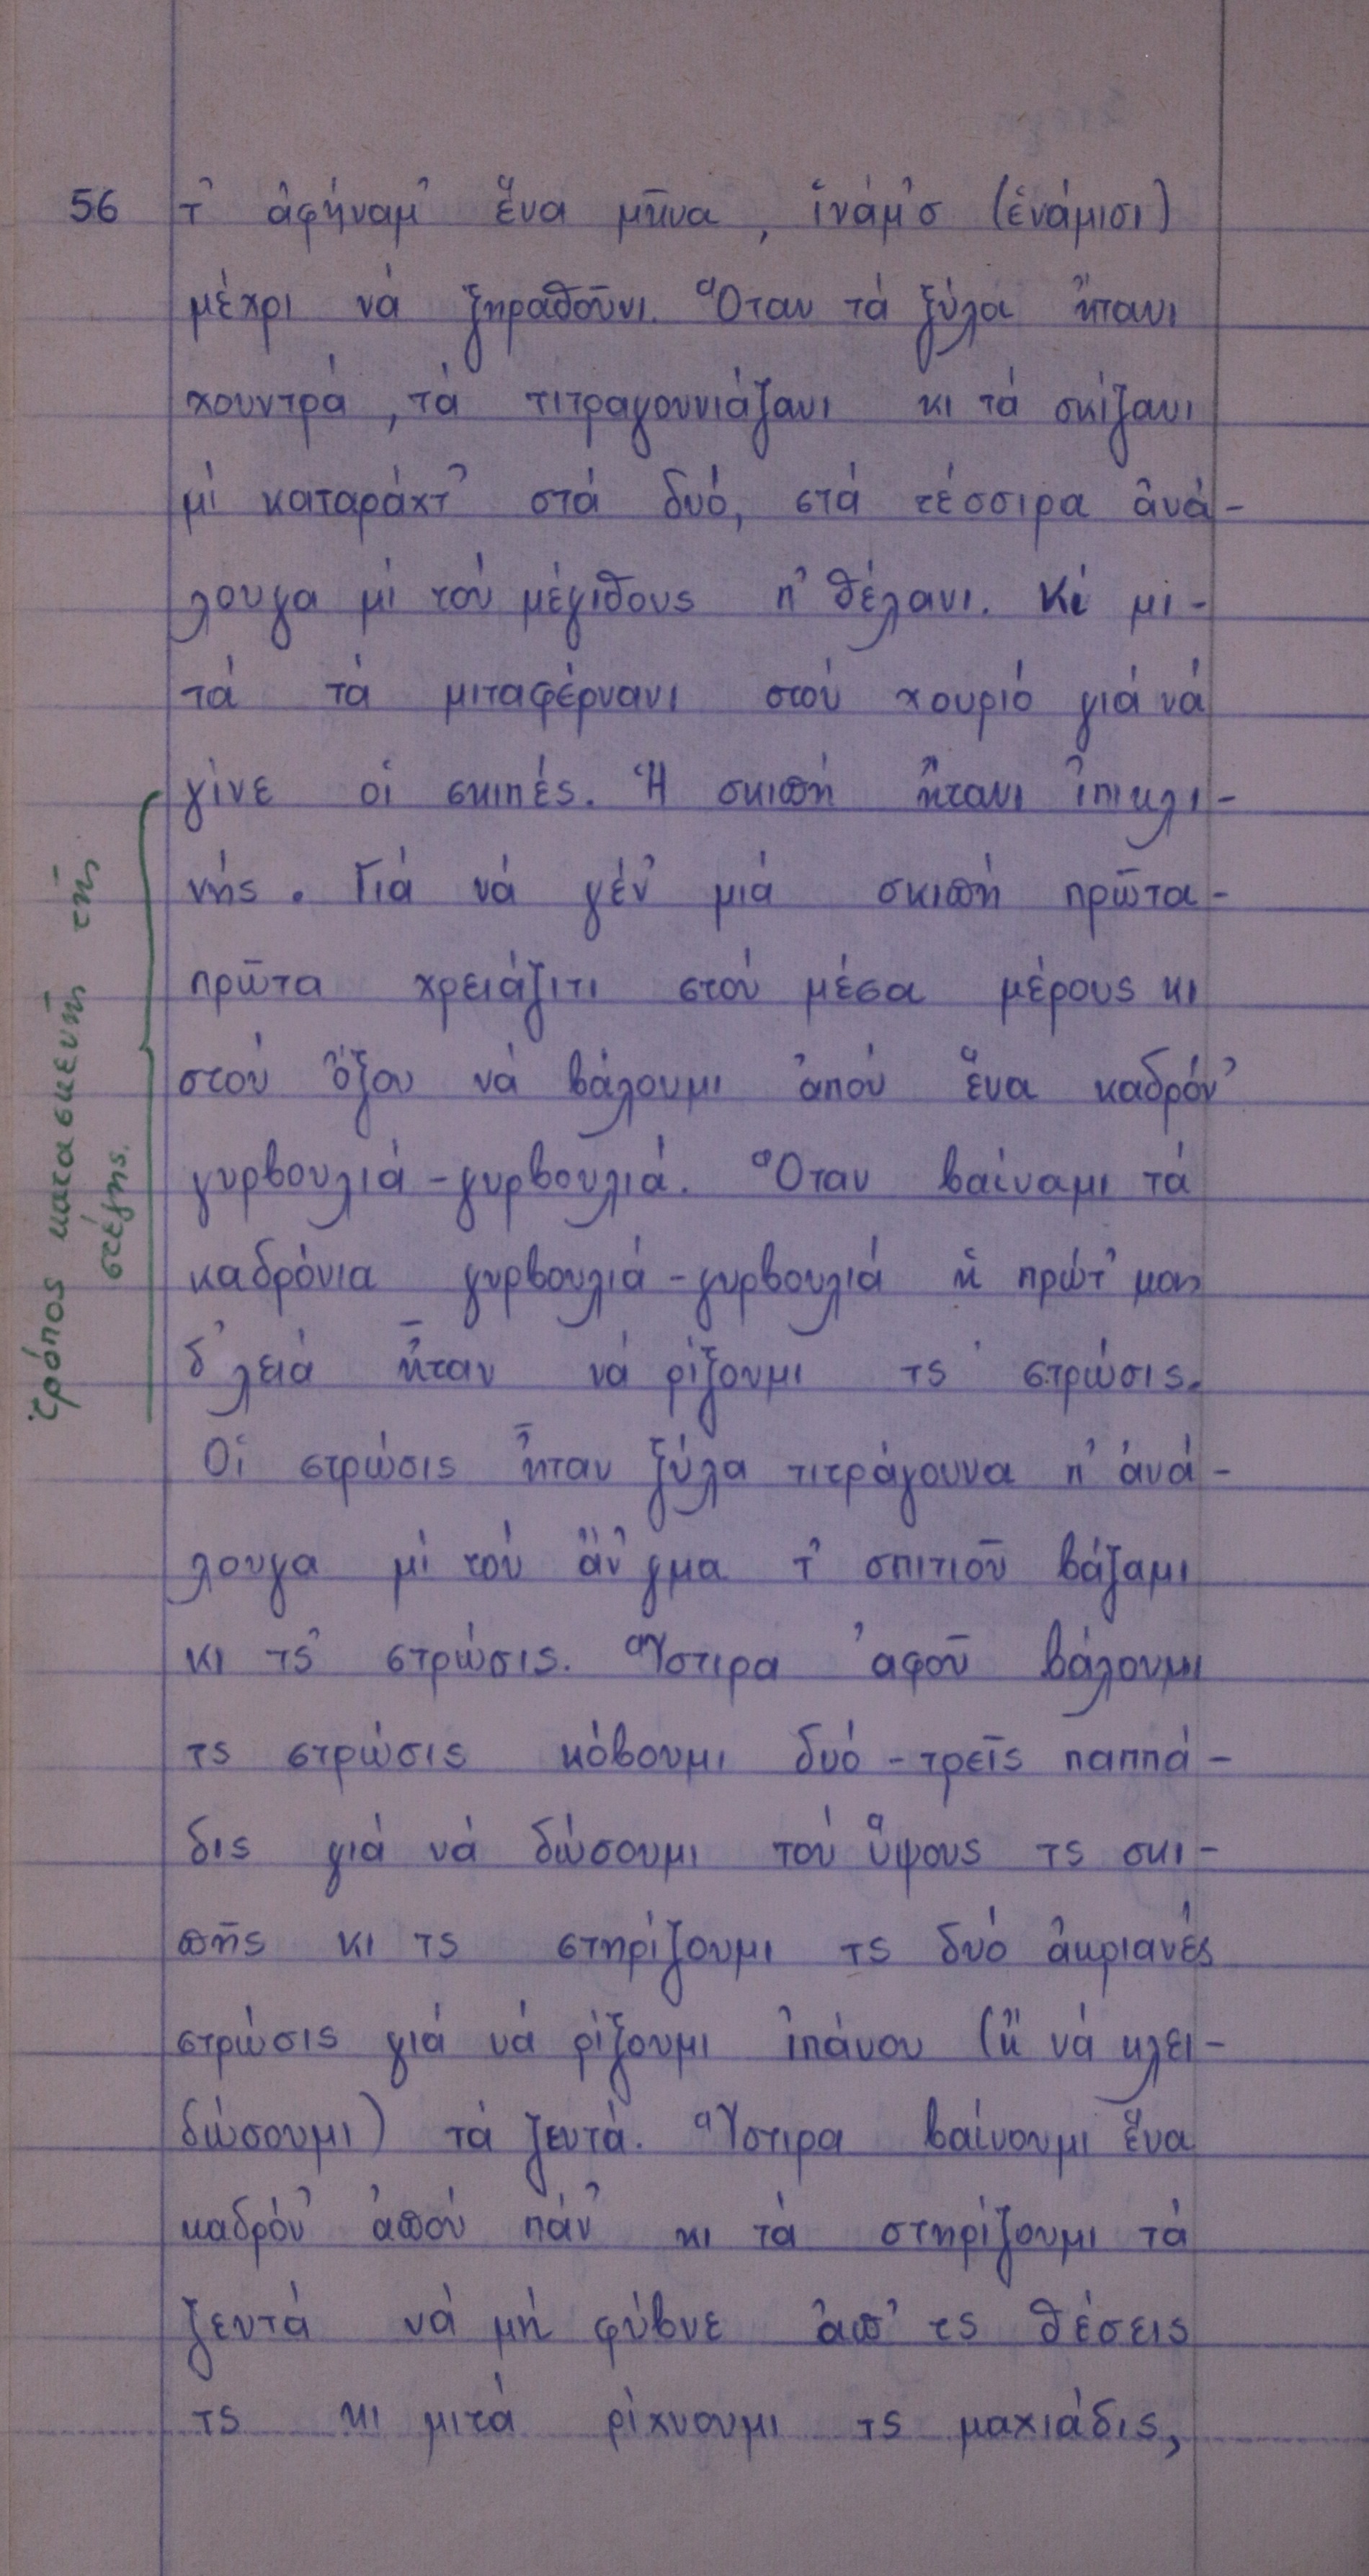 56
τ' ἀφήναμ' ἕνα μῆνα, ἰνάμ'σ (ἐνάμισι)
μέχρι νά ξηραθοῦνι. Ὅταν τά ξύλα ἤτανι
χουντρά, τά τιτραγουνιάζανι κι τά σκίζανι
μί καταράχτ' στά δυό, στά τέσσιρα ἀνά-
λουγα μί τού μέγιθους π' θέλανι. Κί μι-
τά τά μιταφέρνανι στού χουριό γιά νά
γίνε οἱ σκιπές. Ἡ σκιπή ἤτανι ἰπικλι-
νής. Γιά νά γέν' μιά σκιπή πρῶτα-
πρῶτα χρειάζιτι στού μέσα μέρους κι
στού ὄξου νά βάλουμι ἀπού ἕνα καδρόν'
γυρβουλιά-γυρβουλιά. Ὅταν βαίναμι τά
καδρόνια γυρβουλιά-γυρβουλιά ἡ πρώτ' μας
δ'λειά ἦταν νά ρίξουμι τς στρώσις.
Οἱ στρώσις ἦταν ξύλα τιτράγουνα π' ἀνά-
λουγα μί τού ἄν'γμα τ' σπιτιοῦ βάζαμι
κι τς' στρώσις. Ὕστιρα ἀφοῦ βάλουμι
τς στρώσις κόβουμι δυό-τρεῖς παππά-
δις γιά νά δώσουμι τού ὕψους τς σκι-
πῆς κι τς στηρίζουμι τς δυό ἀκριανές
στρώσις γιά νά ρίξουμι ἰπάνου (ἤ νά κλει-
δώσουμι) τά ζευτά. Ὕστιρα βαίνουμι ἕνα
καδρόν' ἀπού πάν' κι τά στηρίζουμι τά
ζευτά νά μή φύβνε ἀπ' τς θέσεις
τς κι μιτά ρίχνουμι τς μαχιάδις,
Τρόπος κατασκευῆς τῆς
στέγης.